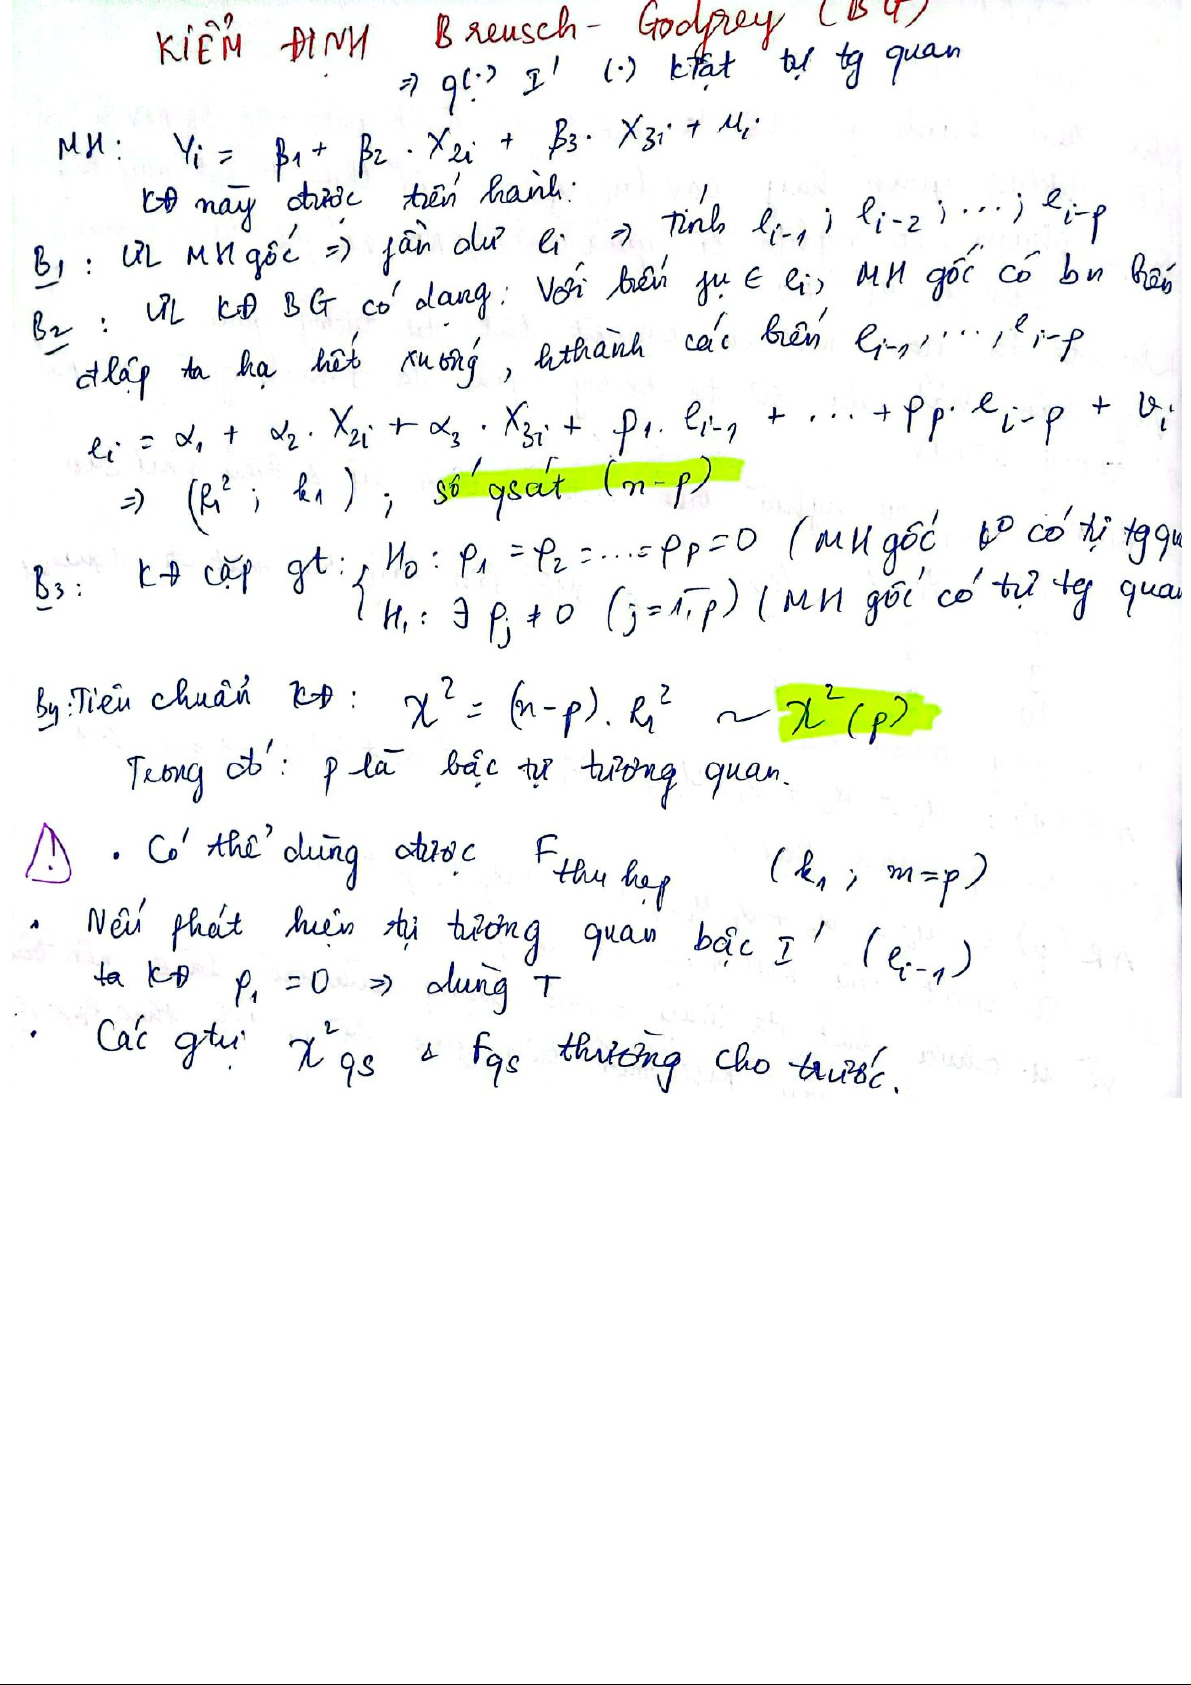 KIỂM ĐỊNH Breusch - Godfrey (BG)
⇒ g(.) I' (.) ktật tự tg quan
MH: Yi = β1 + β2 . X2i + β3 . X3i + Ui
KĐ này được tiến hành:
B1 : ƯL MH gốc ⇒ fần dư ei ⇒ Tính ei-1 ; ei-2 ; ... ; ei-p
B2 : ƯL KĐ BG có dạng: Với biến fụ ∈ ei, MH gốc có bn biến
đlập ta hạ hết xuống, hthành các biến ei-1, ..., ei-p
ei = α1 + α2 . X2i + α3 . X3i + ρ1 . ei-1 + ... + ρp . ei-p + vi
⇒ (R1² ; k1) ; số qsát (n-p)
B3 : KĐ cặp gt: { H0 : ρ1 = ρ2 = ... = ρp = 0 (MH gốc k° có tự tg qu
H1 : ∃ ρj ≠ 0 (j = 1,p) (MH gốc có tự tg quan
B4: Tiêu chuẩn KĐ : χ² = (n-p) . R1² ~ χ²(p)
Trong đó : p là bậc tự tương quan.
! . Có thể dùng được F thu hẹp (k1 ; m=p)
. Nếu phát hiện tự tương quan bậc I' (ei-1)
ta KĐ ρ1 = 0 ⇒ dùng T
. Các gtrị χ²qs & Fqs thường cho trước.